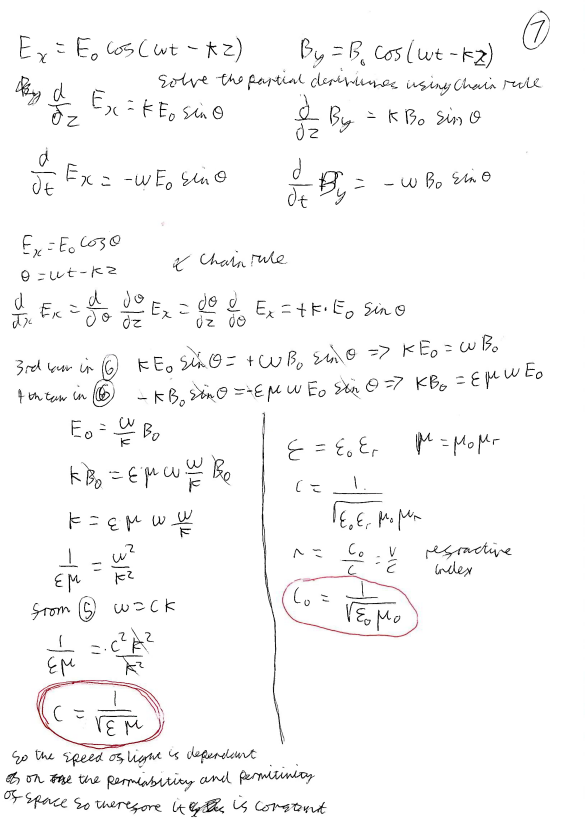 7
E_x = E_0 cos(ωt - kz)    B_y = B_0 cos(ωt - kz)
solve the partial derivitives using chain rule
d/∂z E_x = kE_0 sinθ    d/∂z B_y = kB_0 sinθ
d/∂t E_x = -ωE_0 sinθ    d/∂t B_y = -ωB_0 sinθ
E_x = E_0 cosθ
θ = ωt - kz    chain rule
d/dx E_x = d/∂θ ∂θ/∂z E_x = ∂θ/∂z d/∂θ E_x = +k·E_0 sinθ
3rd law in ⑥ kE_0 sinθ = +ωB_0 sinθ => kE_0 = ωB_0
4th law in ⑥ -kB_0 sinθ = -εμωE_0 sinθ => kB_0 = εμωE_0
E_0 = ω/k B_0
kB_0 = εμω ω/k B_0
k = εμω ω/k
1/εμ = ω²/k²
from ⑤ ω = ck
1/εμ = c²k²/k²
c = 1/√εμ
ε = ε_0 ε_r    μ = μ_0 μ_r
c = 1/√ε_0 ε_r μ_0 μ_r
n = c_0/c = v/c refractive
index
c_0 = 1/√ε_0 μ_0
so the speed of light is dependant
on the permiability and permitivity
of space so therefore it is constant